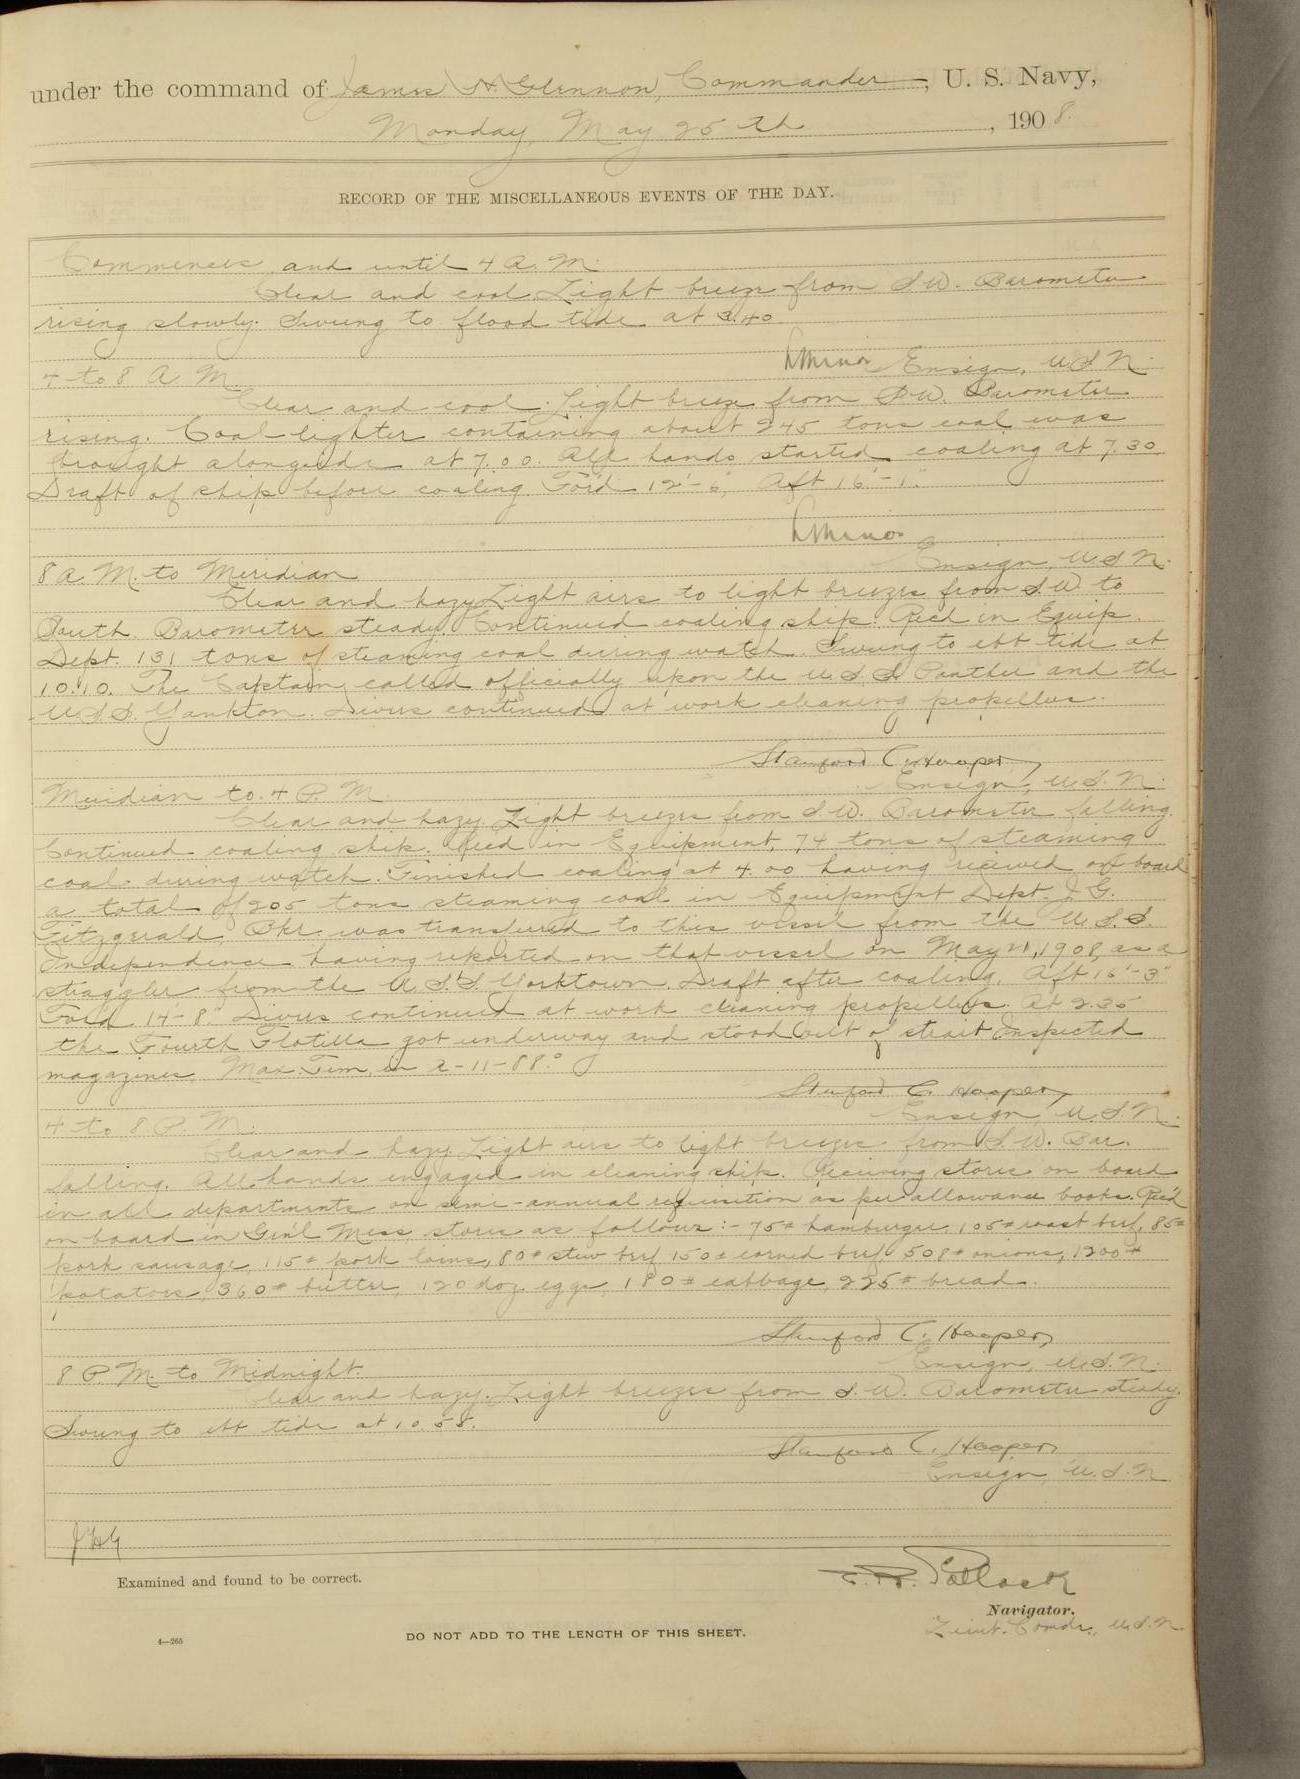 under the command of James H. Glennon, Commander, U. S. Navy,
Monday, May 25th, 1908.
RECORD OF THE MISCELLANEOUS EVENTS OF THE DAY.
Commences and until 4 A. M.
Clear and cool. Light breeze from S.W. Barometer
rising slowly. Swung to flood tide at 3.40.
Ensign, U S N.
4 to 8 A. M.
Clear and cool. Light breeze from S.W. Barometer
rising. Coal lighter containing about 245 tons coal was
brought alongside at 7.00. All hands started coaling at 7.30.
Draft of ship before coaling. For'd 12'-6", Aft 16'-1".
Ensign, U.S.N.
8 A. M. to Meridian
Clear and hazy. Light airs to light breezes from S.W. to
South. Barometer steady. Continued coaling ship. Rec'd in Equip.
Dept. 131 tons of steaming coal during watch. Swung to ebb tide at
10.10. The Captain called officially upon the U.S.S. Panther and the
U.S.S. Yankton. Divers continued at work cleaning propellers.
Stanford C. Hooper,
Ensign, U.S.N.
Meridian to 4 P. M.
Clear and hazy. Light breezes from S.W. Barometer falling.
Continued coaling ship. Rec'd in Equipment, 74 tons of steaming
coal during watch. Finished coaling at 4.00 having received on board
a total of 205 tons steaming coal in Equipment Dept. J. G.
Fitzgerald, Bkr. was transferred to this vessel from the U.S.S.
Independence having reported on that vessel on May 21, 1908, as a
straggler from the U.S.S. Yorktown. Draft after coaling. Aft 16'-3"
For'd 14'-8". Divers continued at work cleaning propellers. At 2.35
the Fourth Flotilla got underway and stood out of strait. Inspected
magazines, Max. Tem. in A-11-88°
Stanford C. Hooper,
Ensign U.S.N.
4 to 8 P. M.
Clear and hazy. Light airs to light breezes from S.W. Bar.
falling. All hands engaged in cleaning ship. Receiving stores on board
in all departments on semi-annual requisition as per allowance books. Rec'd
on board in Gen'l Mess stores as follows:- 75# hamburger, 105# roast beef, 85#
pork sausage, 115# pork loins, 80# stew beef, 150# corned beef, 508# onions, 1200#
potatoes, 360# butter, 120 doz. eggs, 180# cabbage, 225# bread.
Stanford C. Hooper,
Ensign, U.S.N.
8 P. M. to Midnight.
Clear and hazy. Light breezes from S.W. Barometer steady.
Swung to ebb tide at 10.58.
Stanford C. Hooper
Ensign, U.S.N.
JHG
Examined and found to be correct.
Navigator.
Lieut. Comdr., U.S.N.
4—265
DO NOT ADD TO THE LENGTH OF THIS SHEET.